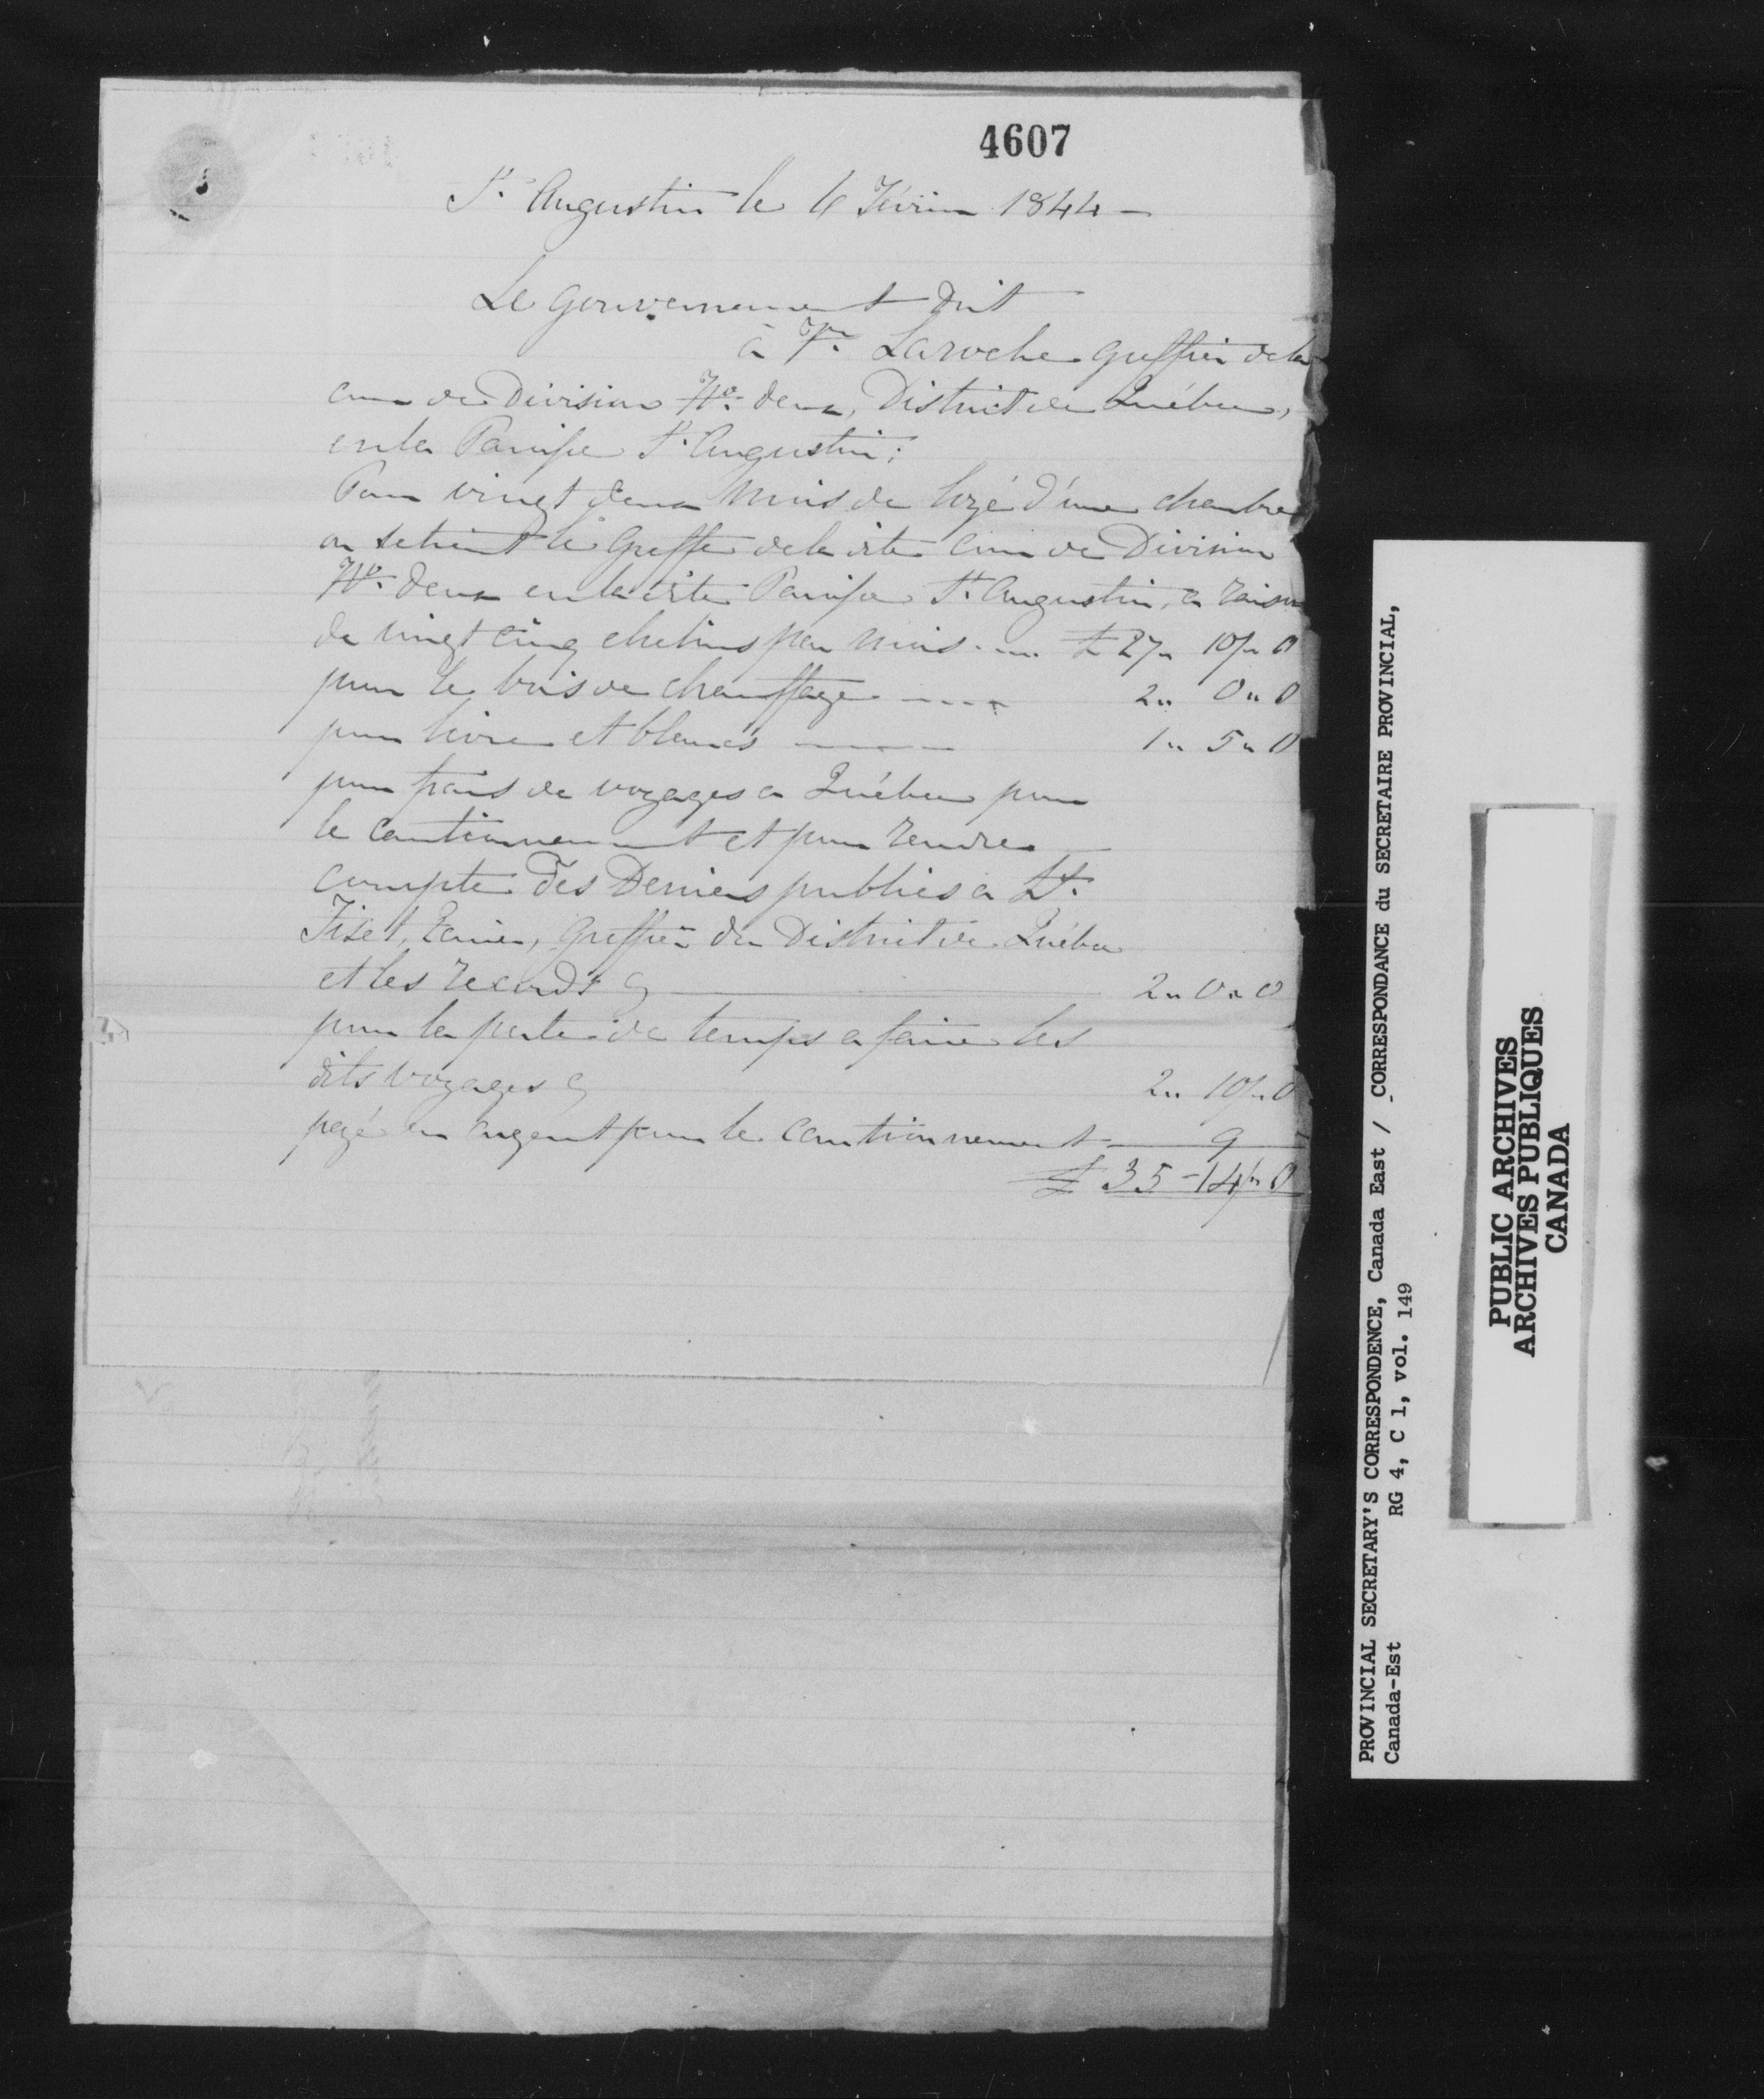 4607
St. Augustin le 6 Février 1844 —
Le gouvernement doit
à Fr. Laroche greffier de la
cour de Division No. deux, District de Québec,
en la Paroisse St. Augustin;
Pour vingt deux mois de loyé d'une chambre
ou se tient le Greffe de la dite cour de Division
No. deux en la dite Paroisse St. Augustin, a raison
de vingt cinq chelins par mois .... £ 27 " 10 " 0
pour le bois de chauffage .... 2 " 0 " 0
pour livre et blancs ———— 1 " 5 " 0
pour frais de voyages a Québec pour
le cautionnement et pour rendre
compte des Deniers publics a
Fiset, Ecuier, Greffier du District de Québec
et les records ———— 2 " 0 " 0
pour la perte de temps a faire les
dits voyages 2 " 10 " 0
payé en argent pour le cautionnement — 9
£ 35 - 14 " 0
PROVINCIAL SECRETARY'S CORRESPONDENCE, Canada East / CORRESPONDANCE du SECRETAIRE PROVINCIAL,
Canada-Est RG 4, C 1, vol. 149
PUBLIC ARCHIVES
ARCHIVES PUBLIQUES
CANADA